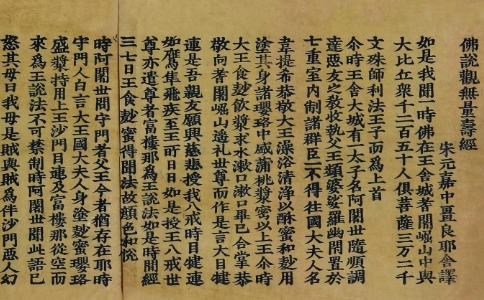 佛說觀無量壽經
宋元嘉中畺良耶舍譯
如是我聞一時佛在王舍城耆闍崛山中與
大比丘衆千二百五十人俱菩薩三万二千
文殊師利法王子而為上首
尒時王舍大城有一太子名阿闍世隨順調
達惡友之教收執父王頻婆娑羅幽閇置於
七重室內制諸群臣一不得往國大夫人名
韋提希恭敬大王澡浴清淨以酥蜜和麨用
塗其身諸瓔珞中盛蒲桃漿密以上王尒時
大王食麨飲漿求水漱口漱口畢已合掌恭
敬向耆闍崛山遙礼世尊而作是言大目犍
連是吾親友願興慈悲授我八戒時目犍連
如鷹隼飛疾至王所日日如是授王八戒世
尊亦遣尊者富樓那為王說法如是時閒經
三七日王食麨蜜得聞法故顏色和恱
時阿闍世問守門者父王今者猶存在耶時
守門人白言大王國大夫人身塗麨蜜瓔珞
盛漿持用上王沙門目連及富樓那從空而
來為王說法不可禁制時阿闍世聞此語已
怒其母曰我母是賊與賊為伴沙門惡人幻